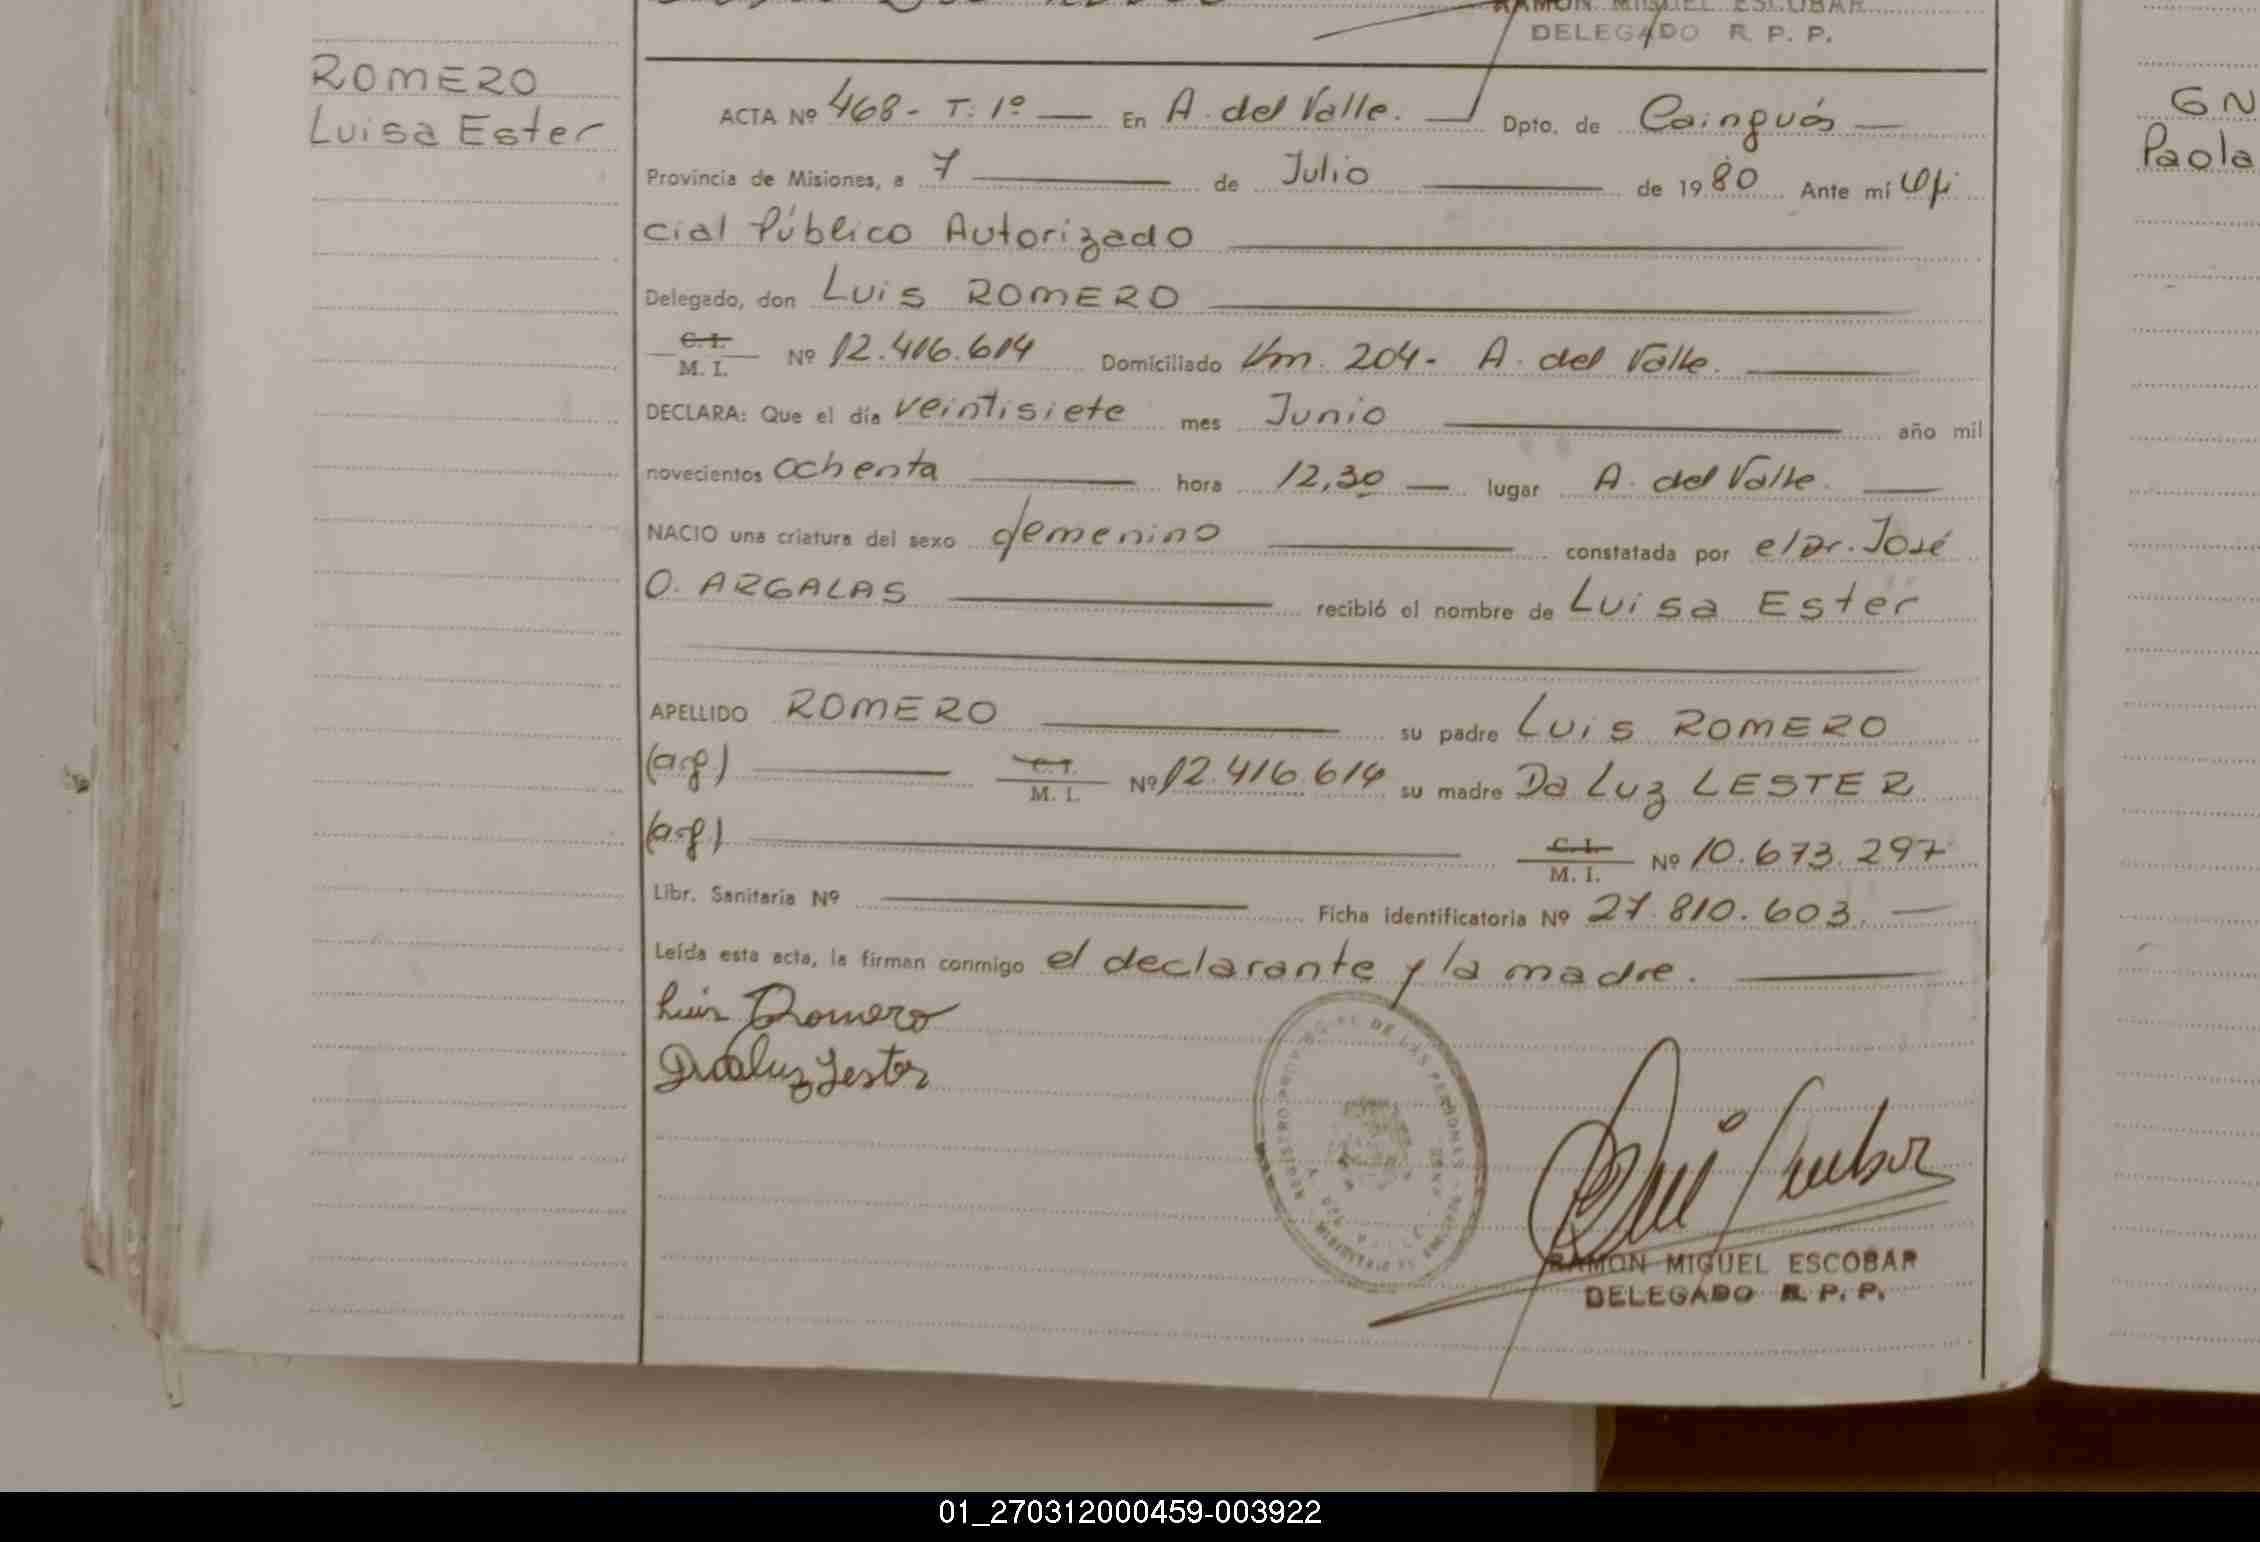 RAMON MIGUEL ESCOBAR
DELEGADO R. P. P.
ROMERO
Luisa Ester
ACTA Nº 468- T: 1º En A. del Valle. Dpto. de Cainguás
Provincia de Misiones, a 7 de Julio de 1980 Ante mí Ofi
cial Público Autorizado
Delegado, don Luis ROMERO
C. I.
M. I. Nº 12.416.614 Domiciliado Km. 204- A. del Valle.
DECLARA: Que el día veintisiete mes Junio año mil
novecientos ochenta hora 12,30 lugar A. del Valle.
NACIO una criatura del sexo femenino constatada por el Dr. José
O. ARGALAS recibió el nombre de Luisa Ester
APELLIDO ROMERO su padre Luis ROMERO
(arg) C. I.
M. I. Nº 12.416.614 su madre Da Luz LESTER
(arg) C. I.
M. I. Nº 10.673.297
Libr. Sanitaria Nº Ficha identificatoria Nº 27.810.603.
Leída esta acta, la firman conmigo el declarante y la madre.
Luis Romero
Da luz Lester
DE LAS PERSONAS
RAMON MIGUEL ESCOBAR
DELEGADO R. P. P.
GN
Paola
01_270312000459-003922